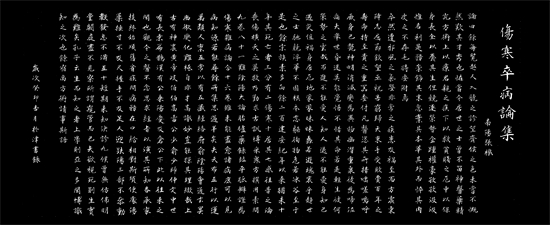 傷寒卒病論集
南陽張機
論曰余每覽越人入虢之診望齊侯之色未嘗不慨
然嘆其才秀也怪當今居世之士曾不留神醫藥精
究方術上以療君親之疾下以救貧賤之厄中以保
身長全以養其生但競逐榮勢企踵權豪孜孜汲汲
惟名利是務崇飾其末忽棄其本華其外而悴其內
皮之不存毛將安附焉
卒然遭邪風之氣嬰非常之疾患及禍至而方震慄
降志屈節欽望巫祝告窮歸天束手受敗賫百年之
壽命持至貴之重器委付凡醫恣其所措咄嗟嗚呼
厥身已斃神明消滅變為異物幽潛重泉徒為啼泣
痛夫舉世昏迷莫能覺悟不惜其命若是輕生彼何
榮勢之云哉而進不能愛人知人退不能愛身知己
遇災值禍身居厄地蒙蒙昧昧惷若遊魂哀乎趨世
之士馳競浮華不固根本忘軀徇物危若冰谷至于
是也余宗族素多向餘二百建安紀年以來猶未十
年其死亡者三分有二傷寒十居其七感往昔之淪
喪傷橫夭之莫救乃勤求古訓博采眾方撰用素問
九卷八十一難陰陽大論胎臚藥錄並平脈辨證為
傷寒雜病論合十六卷雖未能盡愈諸病庶可以見
病知源若能尋余所集思過半矣夫天布五行以運
萬類人稟五常以有五藏經絡府俞陰陽會通玄冥
幽微變化難極自非才高識妙豈能探其理致哉上
古有神農黃帝岐伯伯高雷公少俞少師仲文中世
有長桑扁鵲漢有公乘陽慶及倉公下此以往未之
聞也觀今之醫不念思求經旨以演其所知各承家
技終始順舊省疾問病務在口給相對斯須便處湯
藥按寸不及尺握手不及足人迎趺陽三部不參動
數發息不滿五十短期未知決診九候曾無彷彿明
堂闕庭盡不見察所謂窺管而已夫欲視死別生實
為難矣孔子云生而知之者上學則亞之多聞博識
知之次也余宿尚方術請事斯語
歲次癸卯春月於津書錄